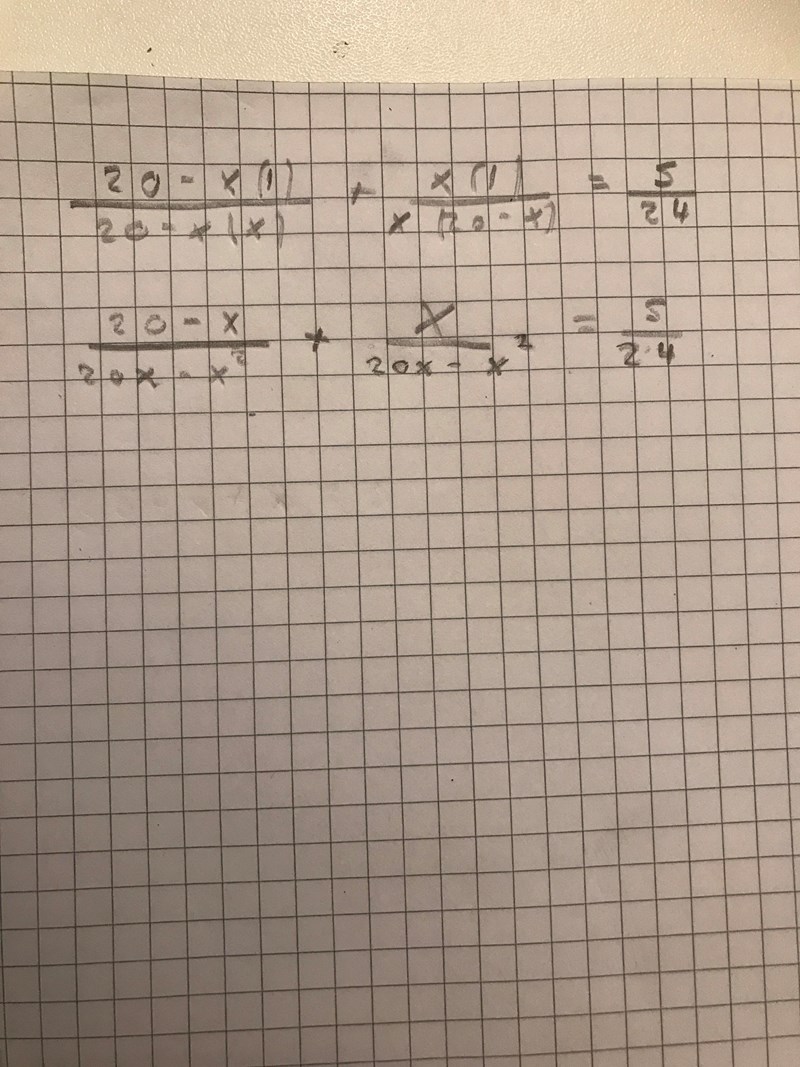 20 - x (1) / 20 - x (x) + x (1) / x (20 - x) = 5 / 24
20 - x / 20x - x² + x / 20x - x² = 5 / 24